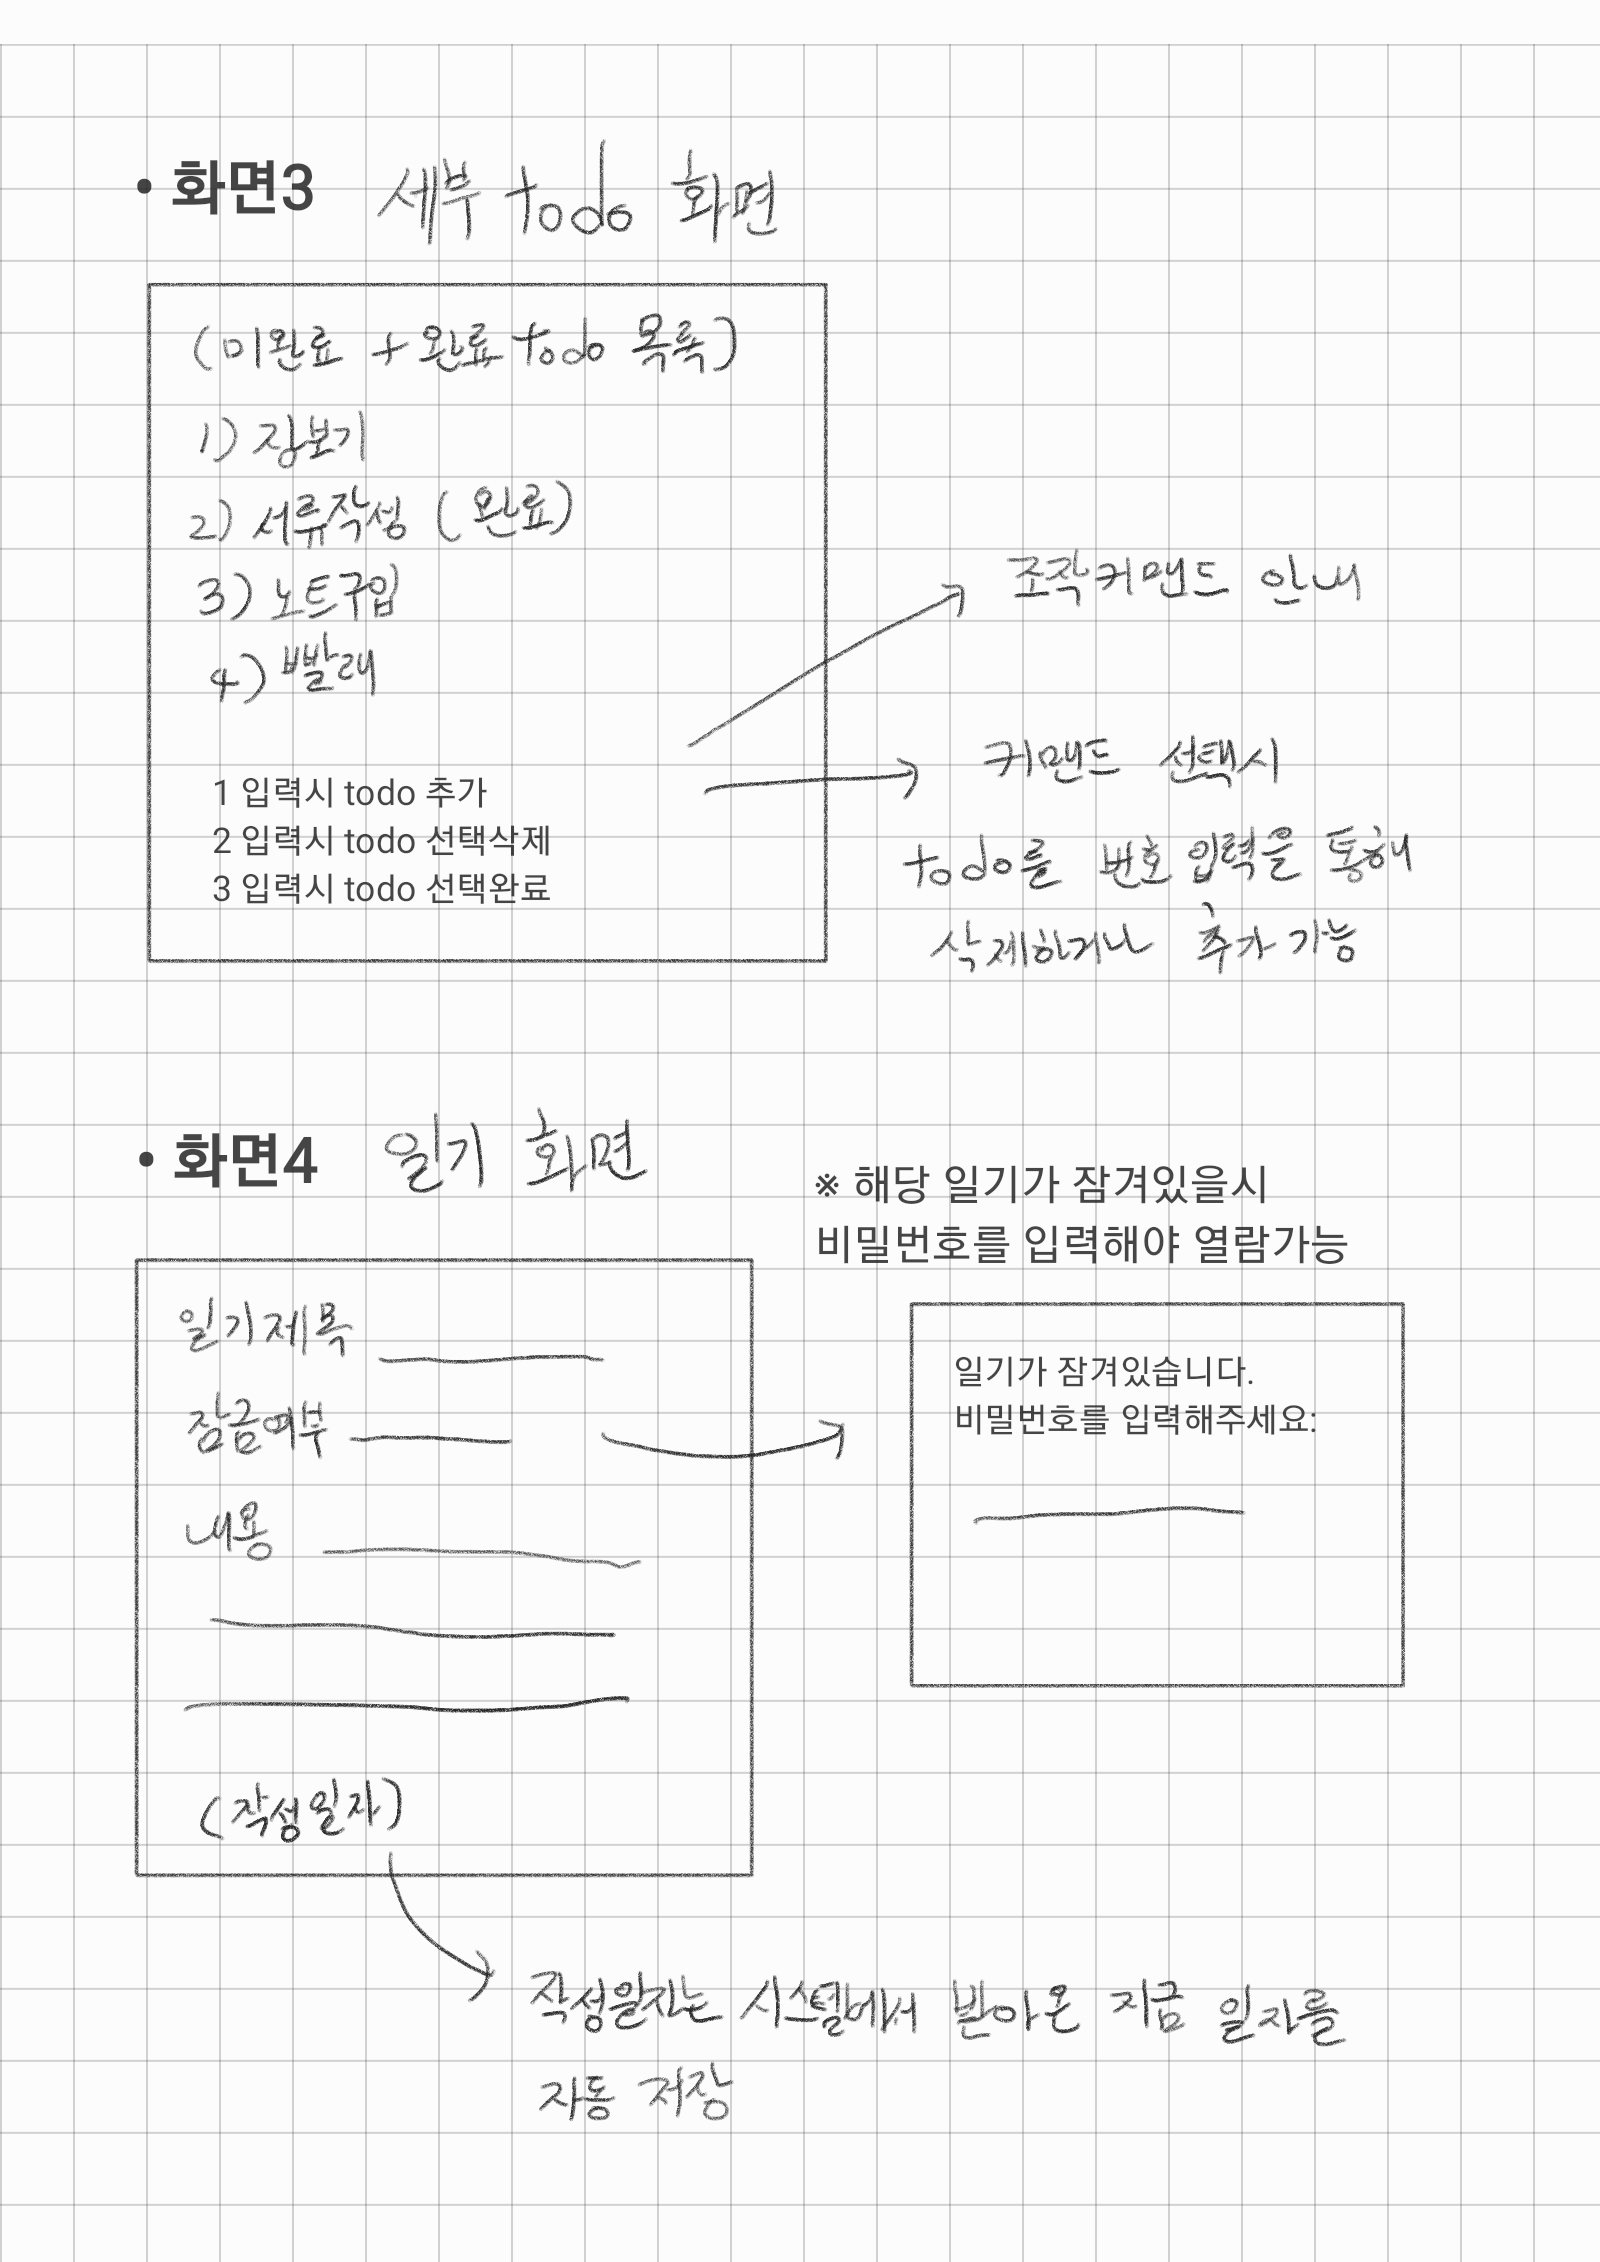 • 화면3 세부 todo 화면
(미완료 + 완료 todo 목록)
1) 장보기
2) 서류작성 (완료)
3) 노트구입
4) 빨래
1 입력시 todo 추가
2 입력시 todo 선택삭제
3 입력시 todo 선택완료
조작커맨드 안내
커맨드 선택시
todo를 번호입력을 통해
삭제하거나 추가 가능
• 화면4 일기 화면
※ 해당 일기가 잠겨있을시
비밀번호를 입력해야 열람가능
일기제목
잠금여부
내용
(작성일자)
일기가 잠겨있습니다.
비밀번호를 입력해주세요:
작성일자는 시스템에서 받아온 지금 일자를
자동 저장